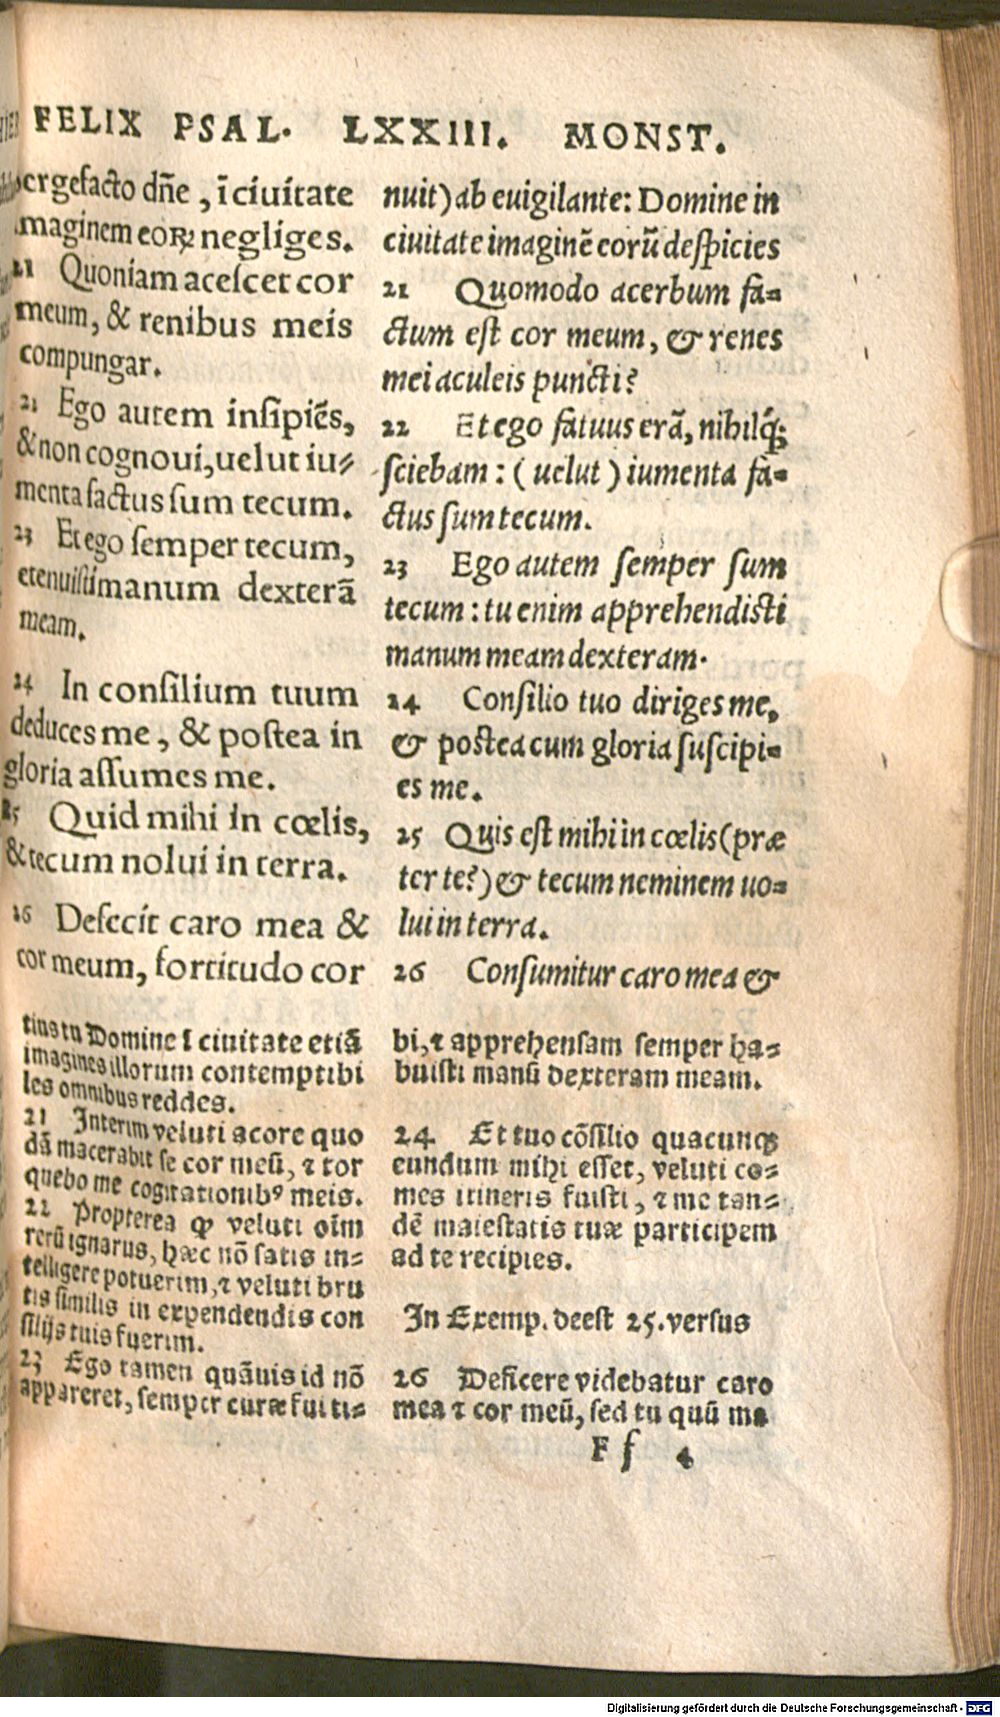 FELIX PSAL. LXXIII. MONST.
ergefacto dñe, ĩ ciuitate
imaginem eoꝝ negliges.
21 Quoniam acescet cor
meum, & renibus meis
compungar.
21 Ego autem insipiẽs,
& non cognoui, uelut iu⸗
menta factus sum tecum.
23 Et ego semper tecum,
etenuisti manum dexterã
meam.
24 In consilium tuum
deduces me, & postea in
gloria assumes me.
25 Quid mihi in cœlis,
& tecum nolui in terra.
26 Defecit caro mea &
cor meum, fortitudo cor
nuit) ab euigilante: Domine in
ciuitate imaginẽ eorũ despicies
21 Quomodo acerbum fa⸗
ctum est cor meum, & renes
mei aculeis puncti?
22 Et ego fatuus erã, nihilq́;
sciebam: (uelut) iumenta fa⸗
ctus sum tecum.
23 Ego autem semper sum
tecum: tu enim apprehendisti
manum meam dexteram.
24 Consilio tuo diriges me,
& postea cum gloria suscipi⸗
es me.
25 Quis est mihi in cœlis (præ
ter te?) & tecum neminem uo⸗
lui in terra.
26 Consumitur caro mea &
tius tu Domine ĩ ciuitate etiã
imagines illorum contemptibi
les omnibus reddes.
21 Interim veluti acore quo
dã macerabit se cor meũ, ⁊ tor
quebo me cogitationibꝰ meis.
22 Propterea ꝙ veluti oĩm
rerũ ignarus, hæc nõ satis in⸗
telligere potuerim, ⁊ veluti bru
tis similis in expendendis con
silijs tuis fuerim.
23 Ego tamen quãuis id nõ
appareret, semper curæ fui ti⸗
bi, ⁊ apprehensam semper ha⸗
buisti manũ dexteram meam.
24 Et tuo cõsilio quacunqꝫ
eundum mihi esset, veluti co⸗
mes itineris fuisti, ⁊ me tan⸗
dẽ maiestatis tuæ participem
ad te recipies.
In Exemp. deest 25. versus
26 Deficere videbatur caro
mea ⁊ cor meũ, sed tu quũ ma
F f 4
Digitalisierung gefördert durch die Deutsche Forschungsgemeinschaft - DFG